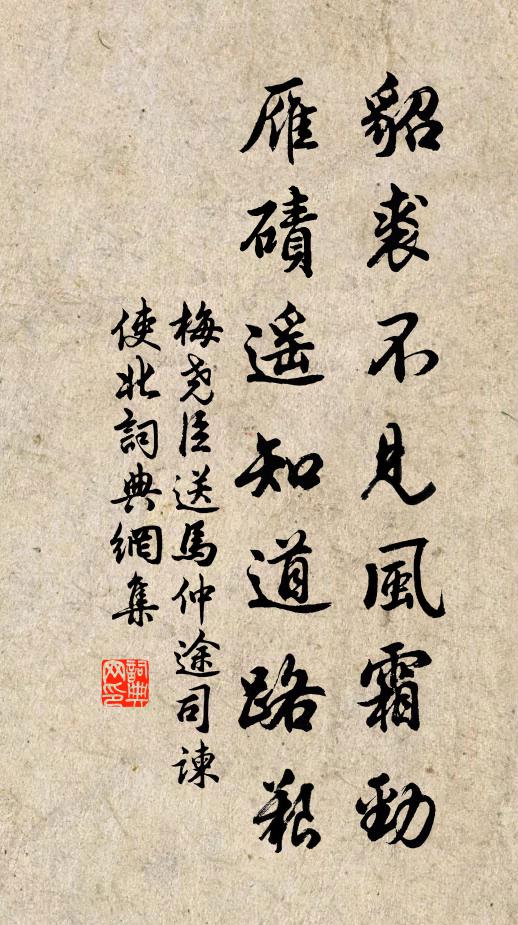 貂裘不見風霜勁
雁磧遥知道路艱
梅堯臣送馬仲途司諫
使北詞典網集
詞典网印